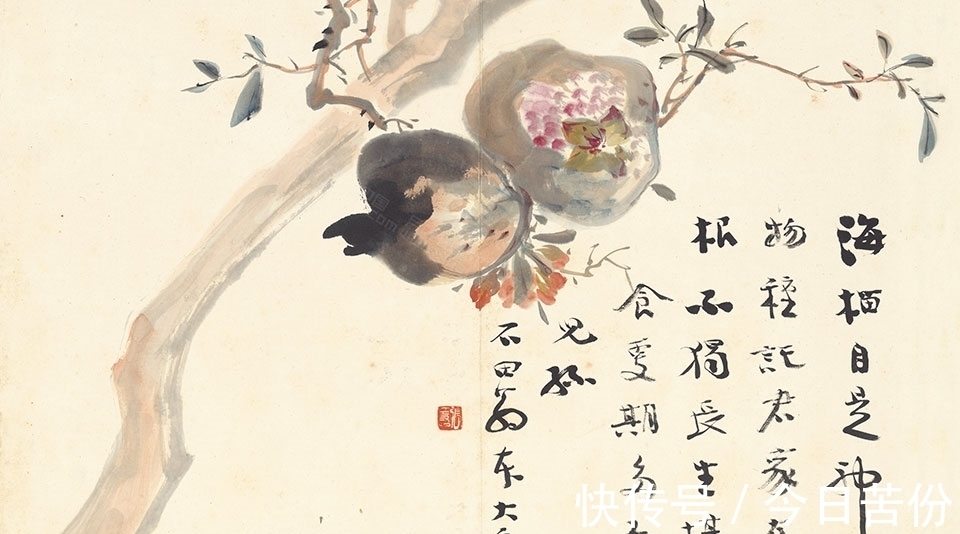 海榴自是神
物種託君家
根不獨長生堪
食更期多
兒孫
石田翁 東大
快传号 / 今日苦份